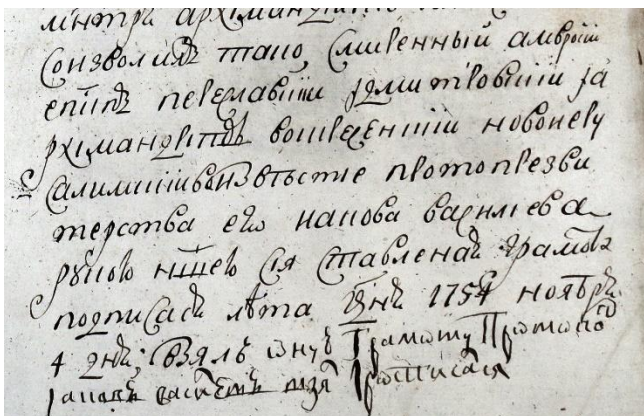 архiмандри
соизволилъ тано, смиренный амвросiи
епiпъ переславскiи и дмитровскiи и а
рхiмандритъ воскресенскiи новоиеру
салимскiи въ извѣстие протопрезви
терства его иакова васильева
рукою ншею сiя ставленая грамота
подписася лѣта гдня 1754 ноября
4 дня; взялъ оную грамоту протопопъ
иаковъ василевъ и росписался